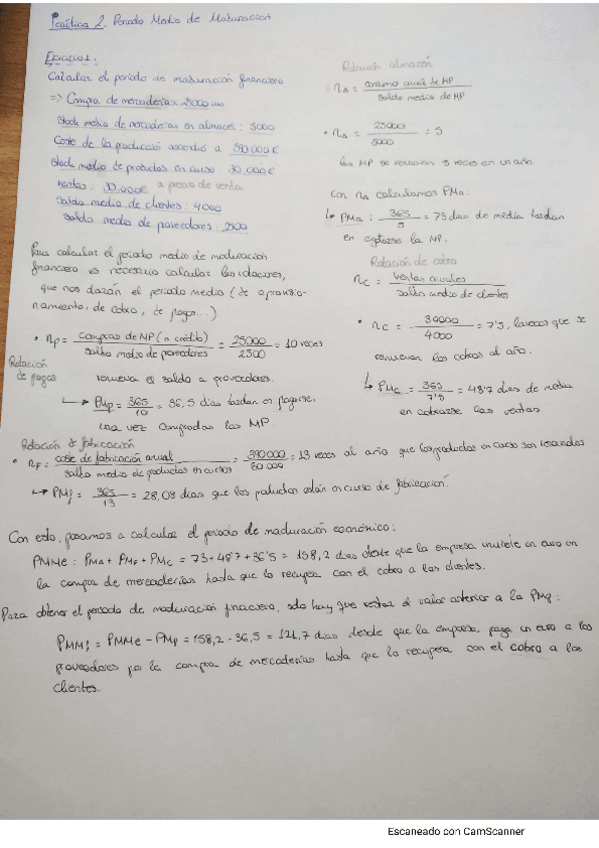 Práctica 2. Periodo Medio de Maduración
Ejercicio 1:
Calcular el periodo de maduración financiero
=> Compra de mercaderías: 25000
Stock medio de mercaderías en almacén: 5000
Coste de la producción asciende a 390 000 €
Stock medio de productos en curso: 30.000 €
Ventas: 30.000€ a precio de venta
Saldo medio de clientes: 4000
Saldo medio de proveedores: 2500
Para calcular el periodo medio de maduración
financiero es necesario calcular las rotaciones,
que nos darán el periodo medio (de aprovisio-
namiento, de cobro, de pago...)
• np = compras de MP (a crédito) / saldo medio de proveedores = 25000 / 2500 = 10 veces
Relación de pagos
renueva el saldo a proveedores.
↳ PMp = 365 / 10 = 36,5 días tardan en pagarse,
una vez compradas las MP
Relación almacén
nA = consumo anual de MP / saldo medio de MP
• nA = 25000 / 5000 = 5
las MP se renuevan 5 veces en un año
Con nA calculamos PMA:
↳ PMA: 365 / 5 = 73 días de media tardan
en agotarse la MP.
Relación de cobro
nc = ventas anuales / saldo medio de clientes
• nc = 30000 / 4000 = 7'5. las veces que se
renuevan los cobros al año.
↳ PMC = 365 / 7'5 = 48'7 días de media
en cobrarse las ventas
Relación de fabricación
• nF = coste de fabricación anual / saldo medio de productos en cursos = 390 000 / 30 000 = 13 veces al año que los productos en curso son
↳ PMf = 365 / 13 = 28,08 días que los productos están en curso de fabricación.
Con esto, pasamos a calcular el periodo de maduración económico:
PMMe: PMA + PMF + PMC = 73 + 48'7 + 36'5 = 158,2 días desde que la empresa invierte un euro en
la compra de mercaderías hasta que lo recupera con el cobro a los clientes.
Para obtener el periodo de maduración financiero, solo hay que restar al valor anterior a la PMp:
PMMf = PMMe - PMp = 158,2 - 36,5 = 121,7 días desde que la empresa paga un euro a los
proveedores por la compra de mercaderías hasta que lo recupera con el cobro a los
clientes.
Escaneado con CamScanner